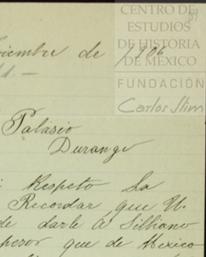 CENTRO DE
ESTUDIOS
DE HISTORIA
DE MÉXICO
FUNDACIÓN
Carlos Slim
iembre de 1906
Palasio
Durango
Respeto la
Recordar que U.
de darle á Silbiano
que de Mexico